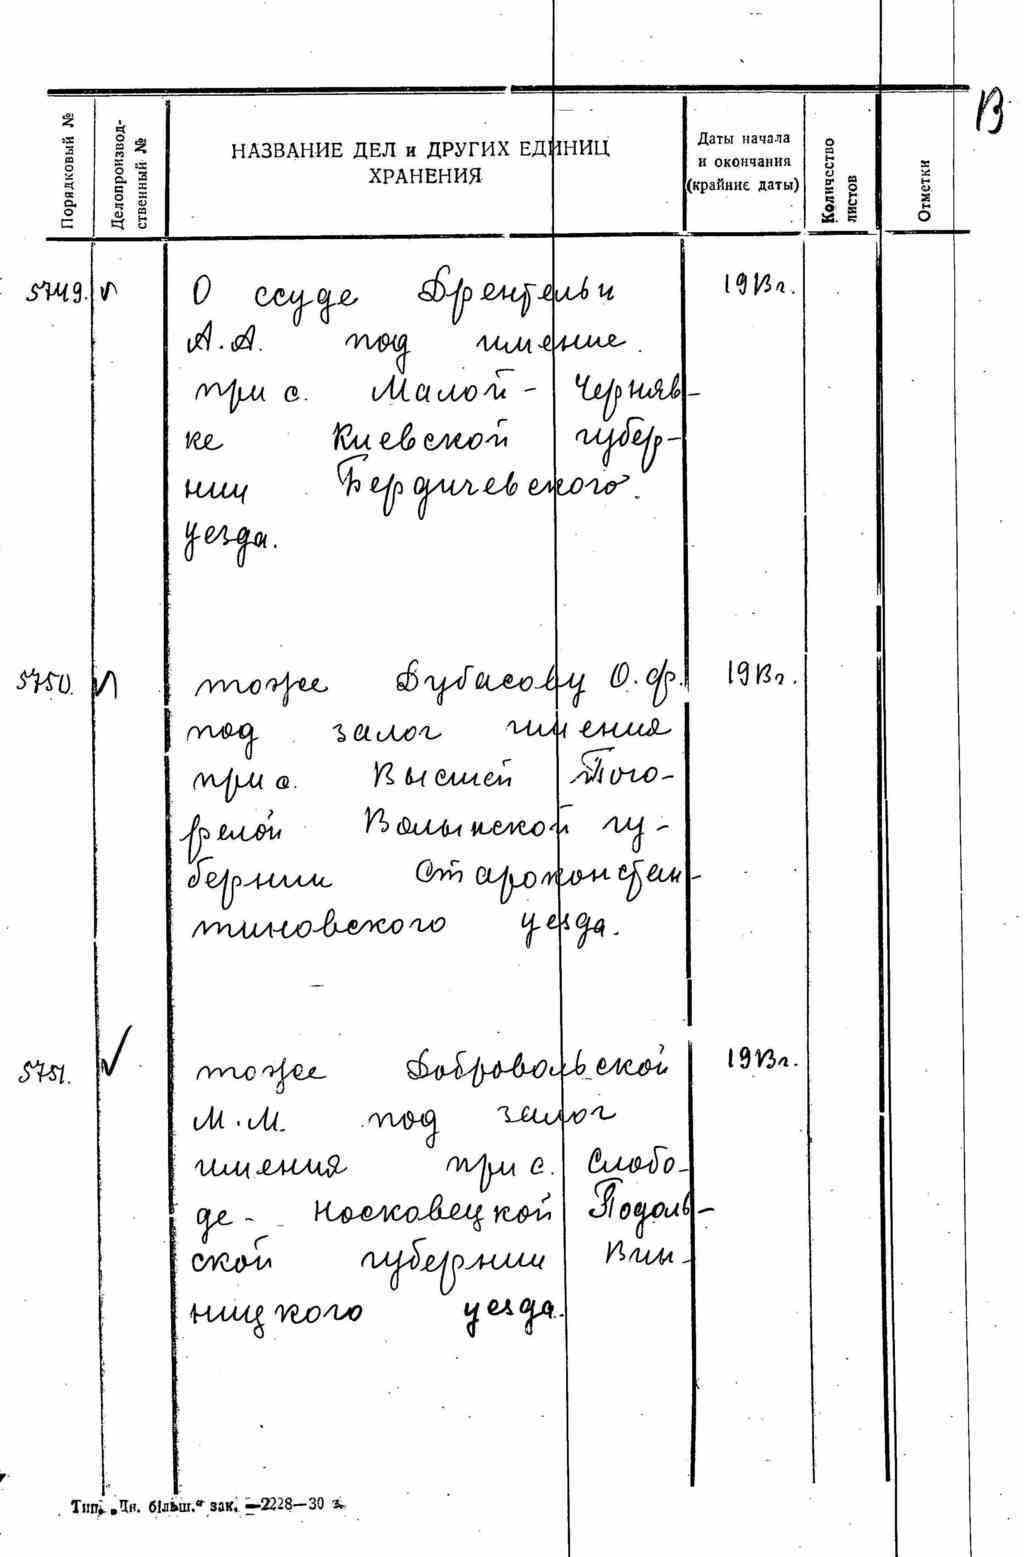 В
Порядковый №
Делопроизвод-
ственный №
НАЗВАНИЕ ДЕЛ и ДРУГИХ ЕДИНИЦ
ХРАНЕНИЯ
Даты начала
и окончания
(крайние даты)
Количество
листов
Отметки
5749. О ссуде Дрентельн 1913г.
А.А. под имение
при с. Малой - Черняв-
ке Киевской губер-
нии Бердичевского
уезда.
5750. тоже Дубасову О.Ф. 1913г.
под залог имения
при с. Высшей Пого-
релой Волынской гу-
бернии Староконстан-
тиновского уезда.
5751. тоже Добровольской 1913г.
М.М. под залог
имения при с. Слобо-
де - Носковецкой Подоль-
ской губернии Вин-
ницкого уезда.
Тип. „Чн. більш." зак. —2228—30 з.